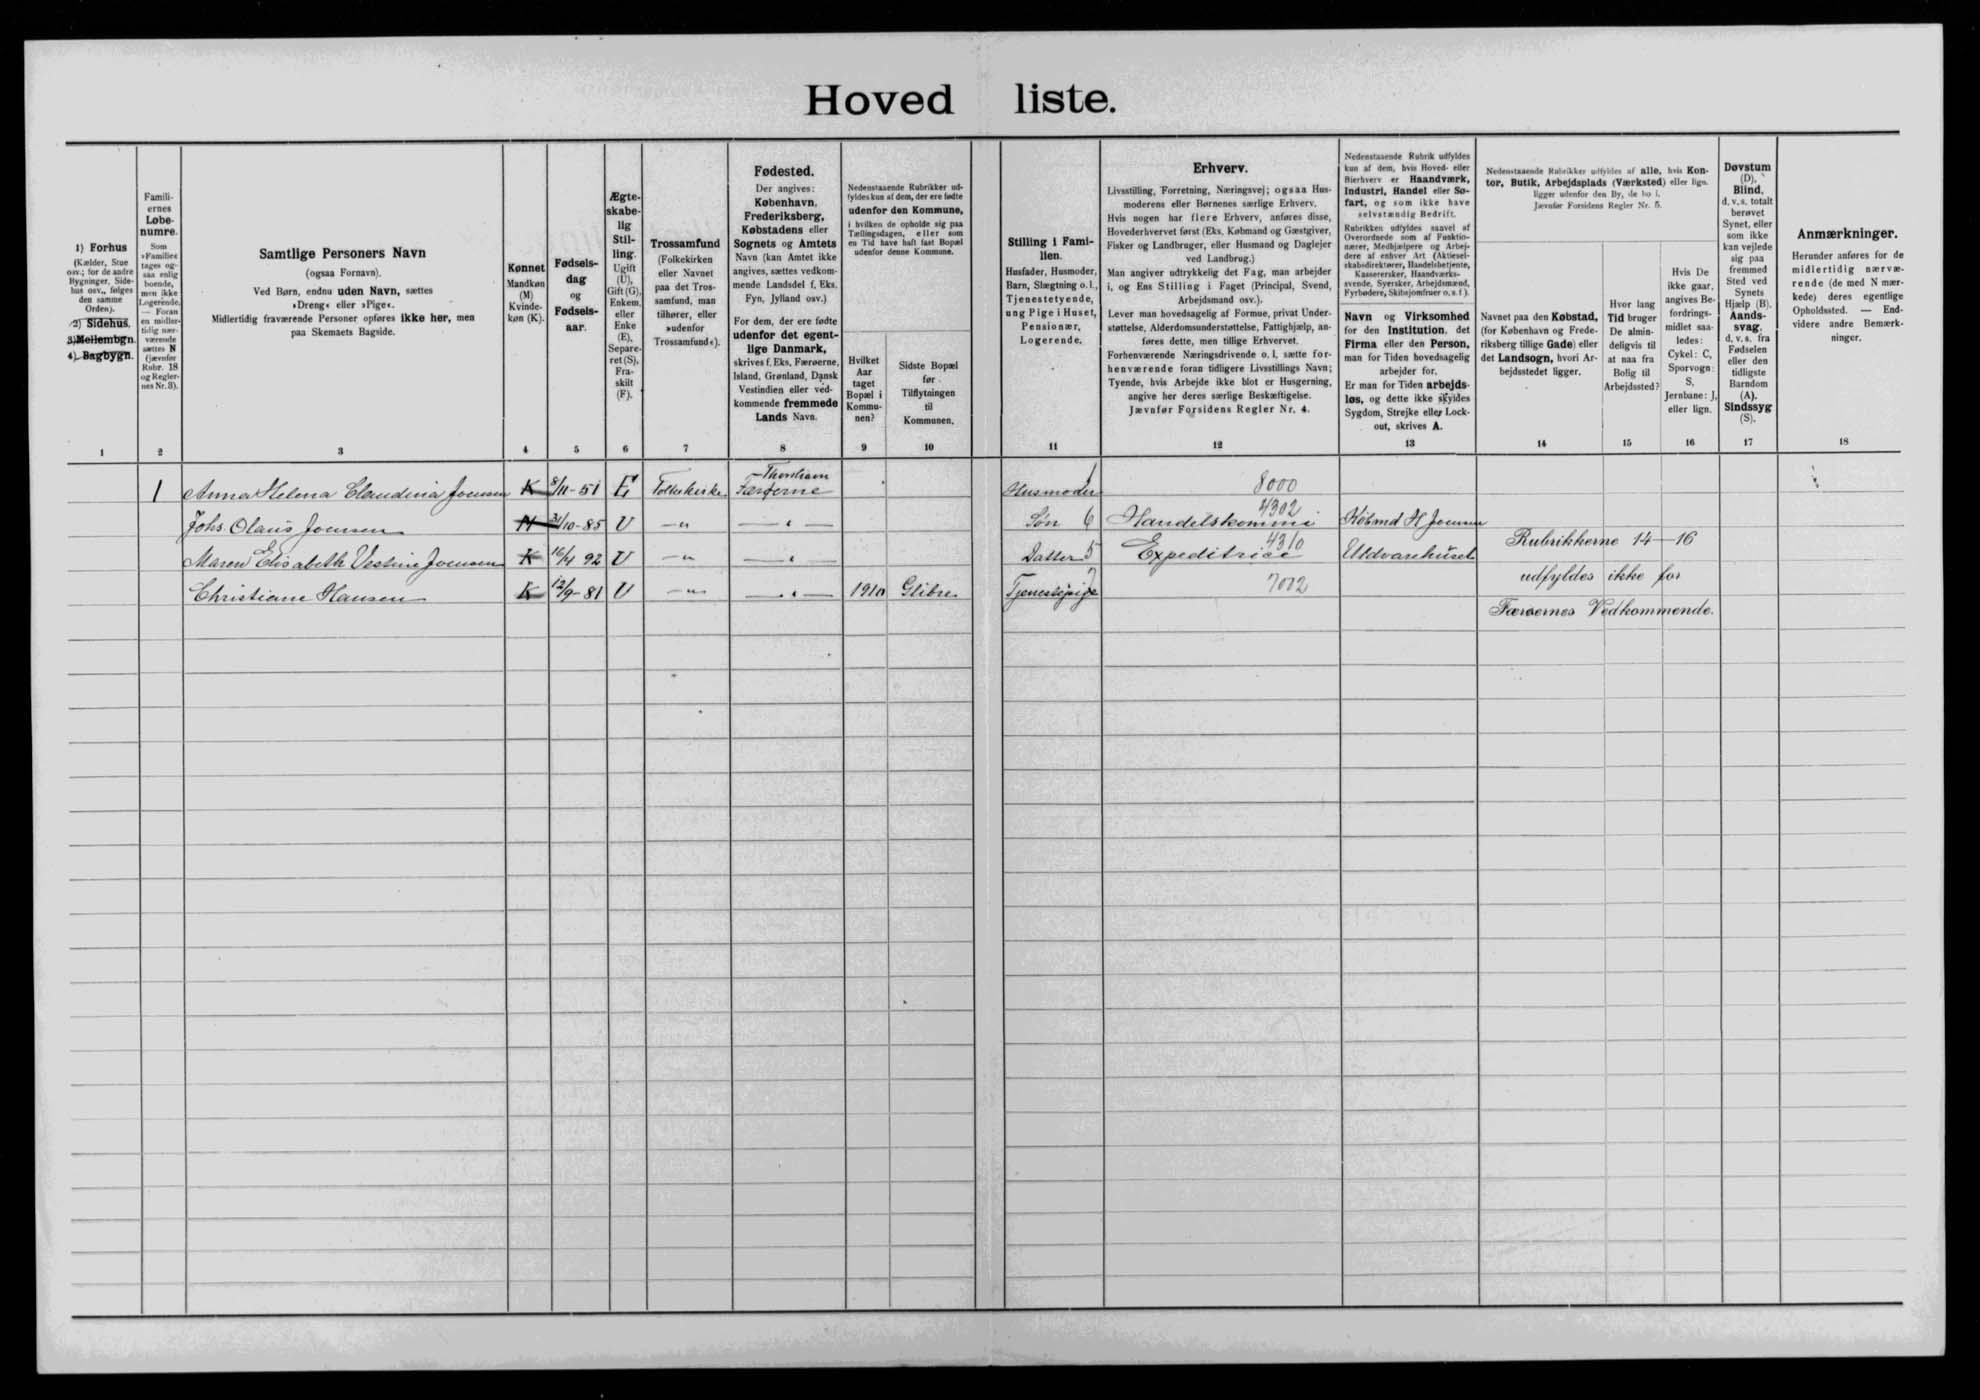 Hoved liste.
1) Forhus
(Kælder, Stue
osv.; for de andre
Bygninger, Side-
hus osv., følges
den samme
Orden).
2) Sidehus.
3) Mellembgn.
4) Bagbygn.
1
Famili-
ernes
Løbe-
numre.
Som
»Familie«
tages og-
saa enlig
boende,
men ikke
Logerende.
— Foran
en midler-
tidig nær-
værende
sættes N
(jævnfør
Rubr. 18
og Regler-
nes Nr. 3).
2
Samtlige Personers Navn
(ogsaa Fornavn).
Ved Børn, endnu uden Navn, sættes
»Dreng« eller »Pige«.
Midlertidig fraværende Personer opføres ikke her, men
paa Skemaets Bagside.
3
Kønnet
Mandkøn
(M)
Kvinde-
køn (K).
4
Fødsels-
dag
og
Fødsels-
aar.
5
Ægte-
skabe-
lig
Stil-
ling.
Ugift
(U),
Gift (G),
Enkem.
eller
Enke
(E),
Separe-
ret (S),
Fra-
skilt
(F).
6
Trossamfund
(Folkekirken
eller Navnet
paa det Tros-
samfund, man
tilhører, eller
»udenfor
Trossamfund«).
7
Fødested.
Der angives:
København,
Frederiksberg,
Købstadens eller
Sognets og Amtets
Navn (kan Amtet ikke
angives, sættes vedkom-
mende Landsdel f. Eks.
Fyn, Jylland osv.)
For dem, der ere fødte
udenfor det egent-
lige Danmark,
skrives f. Eks. Færøerne,
Island, Grønland, Dansk
Vestindien eller ved-
kommende fremmede
Lands Navn.
8
Nedenstaaende Rubrikker ud-
fyldes kun af dem, der ere fødte
udenfor den Kommune,
i hvilken de opholde sig paa
Tællingsdagen, eller som
en Tid have haft fast Bopæl
udenfor denne Kommune.
Hvilket
Aar
taget
Bopæl i
Kommu-
nen?
9
Sidste Bopæl
før
Tilflytningen
til
Kommunen.
10
Stilling i Fami-
lien.
Husfader, Husmoder,
Barn, Slægtning o. l.,
Tjenestetyende,
ung Pige i Huset,
Pensionær,
Logerende.
11
Erhverv.
Livsstilling, Forretning, Næringsvej; ogsaa Hus-
moderens eller Børnenes særlige Erhverv.
Hvis nogen har flere Erhverv, anføres disse,
Hovederhvervet først (Eks. Købmand og Gæstgiver,
Fisker og Landbruger, eller Husmand og Daglejer
ved Landbrug.)
Man angiver udtrykkelig det Fag, man arbejder
i, og Ens Stilling i Faget (Principal, Svend,
Arbejdsmand osv.).
Lever man hovedsagelig af Formue, privat Under-
støttelse, Alderdomsunderstøttelse, Fattighjælp, an-
føres dette, men tillige Erhvervet.
Forhenværende Næringsdrivende o. l. sætte for-
henværende foran tidligere Livsstillings Navn;
Tyende, hvis Arbejde ikke blot er Husgerning,
angive her deres særlige Beskæftigelse.
Jævnfør Forsidens Regler Nr. 4.
12
Nedenstaaende Rubrik udfyldes
kun af dem, hvis Hoved- eller
Bierhverv er Haandværk,
Industri, Handel eller Sø-
fart, og som ikke have
selvstændig Bedrift.
Rubrikken udfyldes saavel af
Overordnede som af Funktio-
nærer, Medhjælpere og Arbej-
dere af enhver Art (Aktiesel-
skabsdirektører, Handelsbetjente,
Kassererske, Haandværks-
svende, Syersker, Arbejdsmænd,
Fyrbødere, Skibsjomfruer o. s. f.).
Navn og Virksomhed
for den Institution, det
Firma eller den Person,
man for Tiden hovedsagelig
arbejder for.
Er man for Tiden arbejds-
løs, og dette ikke skyldes
Sygdom, Strejke eller Lock-
out, skrives A.
13
Nedenstaaende Rubrikker udfyldes af alle, hvis Kon-
tor, Butik, Arbejdsplads (Værksted) eller lign.
ligger udenfor den By, de bo i.
Jævnfør Forsidens Regler Nr. 5.
Navnet paa den Købstad,
(for København og Frede-
riksberg tillige Gade) eller
det Landsogn, hvori Ar-
bejdsstedet ligger.
14
Hvor lang
Tid bruger
De almin-
deligvis til
at naa fra
Bolig til
Arbejdssted?
15
Hvis De
ikke gaar,
angives Be-
fordrings-
midlet saa-
ledes:
Cykel: C,
Sporvogn:
S,
Jernbane: J,
eller lign.
16
Døvstum
(D),
Blind,
d. v. s. totalt
berøvet
Synet, eller
som ikke
kan vejlede
sig paa
fremmed
Sted ved
Synets
Hjælp (B).
Aands-
svag,
d. v. s. fra
Fødselen
eller den
tidligste
Barndom
(A).
Sindssyg
(S).
17
Anmærkninger.
Herunder anføres for de
midlertidig nærvæ-
rende (de med N mær-
kede) deres egentlige
Opholdssted. — End-
videre andre Bemærk-
ninger.
18
1 Anna Helena Claudina Joensen K 8/11-51 E Folkekirke Thorshavn Færøerne Husmoder 1 8000
Johs. Olaus Joensen M 31/10-85 U —"— —"— Søn 6 Handelskommi 4302 Købmd H Joensen
Maren Elisabeth Vestine Joensen K 16/4 92 U —"— —"— Datter 5 Expeditrice 4310 Uldvarehuset
Christiane Hansen K 12/9-81 U —"— —"— 1910 Glibre Tjenestepige 7 7002
Rubrikkerne 14—16
udfyldes ikke for
Færøernes Vedkommende.